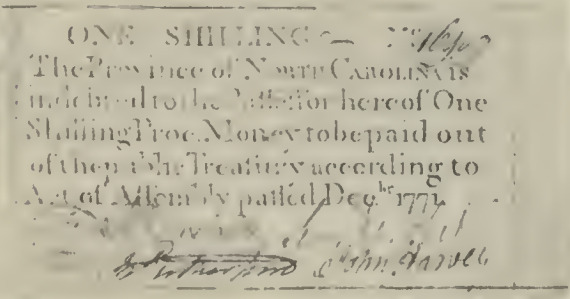 ONE SHILLING
The Province of NORTH CAROLINA is
indebted to the Possessor hereof One
Shilling Proc. Money to be paid out
of the publick Treasury according to
Act of Assembly passed Decbr 1771
Rutherfurd John